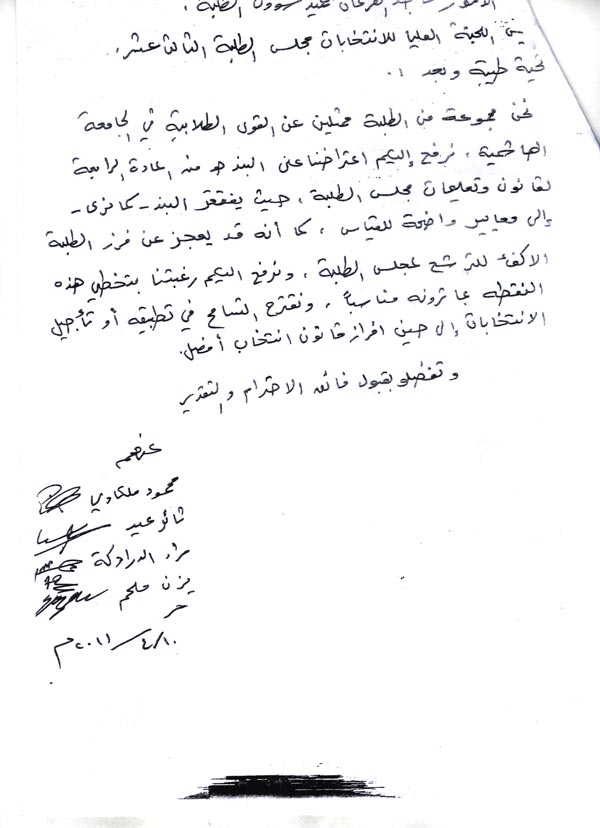 عميد شؤون الطلبة .
اللجنة العليا للانتخابات مجلس الطلبة الثالث عشر .
تحية طيبة وبعد ..
نحن مجموعة من الطلبة ممثلين عن القوى الطلابية في الجامعة
الهاشمية ، نرفع إليكم اعتراضنا على البند من المادة الرابعة
لقانون وتعليمات مجلس الطلبة ، حيث يفتقر البند - كما نرى -
إلى معايير واضحة للقياس ، كما أنه قد يعجز عن فرز الطلبة
الاكفئ للترشح لمجلس الطلبة ، ونرفع اليكم رغبتنا بتخطي هذه
النقطه بما ترونه مناسباً ، ونقترح التسامح في تطبيقه أو تأجيل
الانتخابات إلى حين افراز قانون انتخاب أفضل .
وتفضلو بقبول فائق الاحترام والتقدير
عنهم
محمود ملكاوي
ثائر عيد
الدرادكة
يزن ملحم
١٠/٤/٢٠١١م